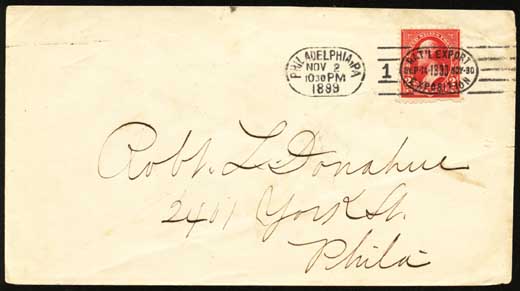 PHILADELPHIA, PA
NOV 2
1030 PM
1899
1
NAT'L EXPORT
SEP.14-1899-NOV-30
EXPOSITION
Robt. L. Donahue
2401 York St.
Phila